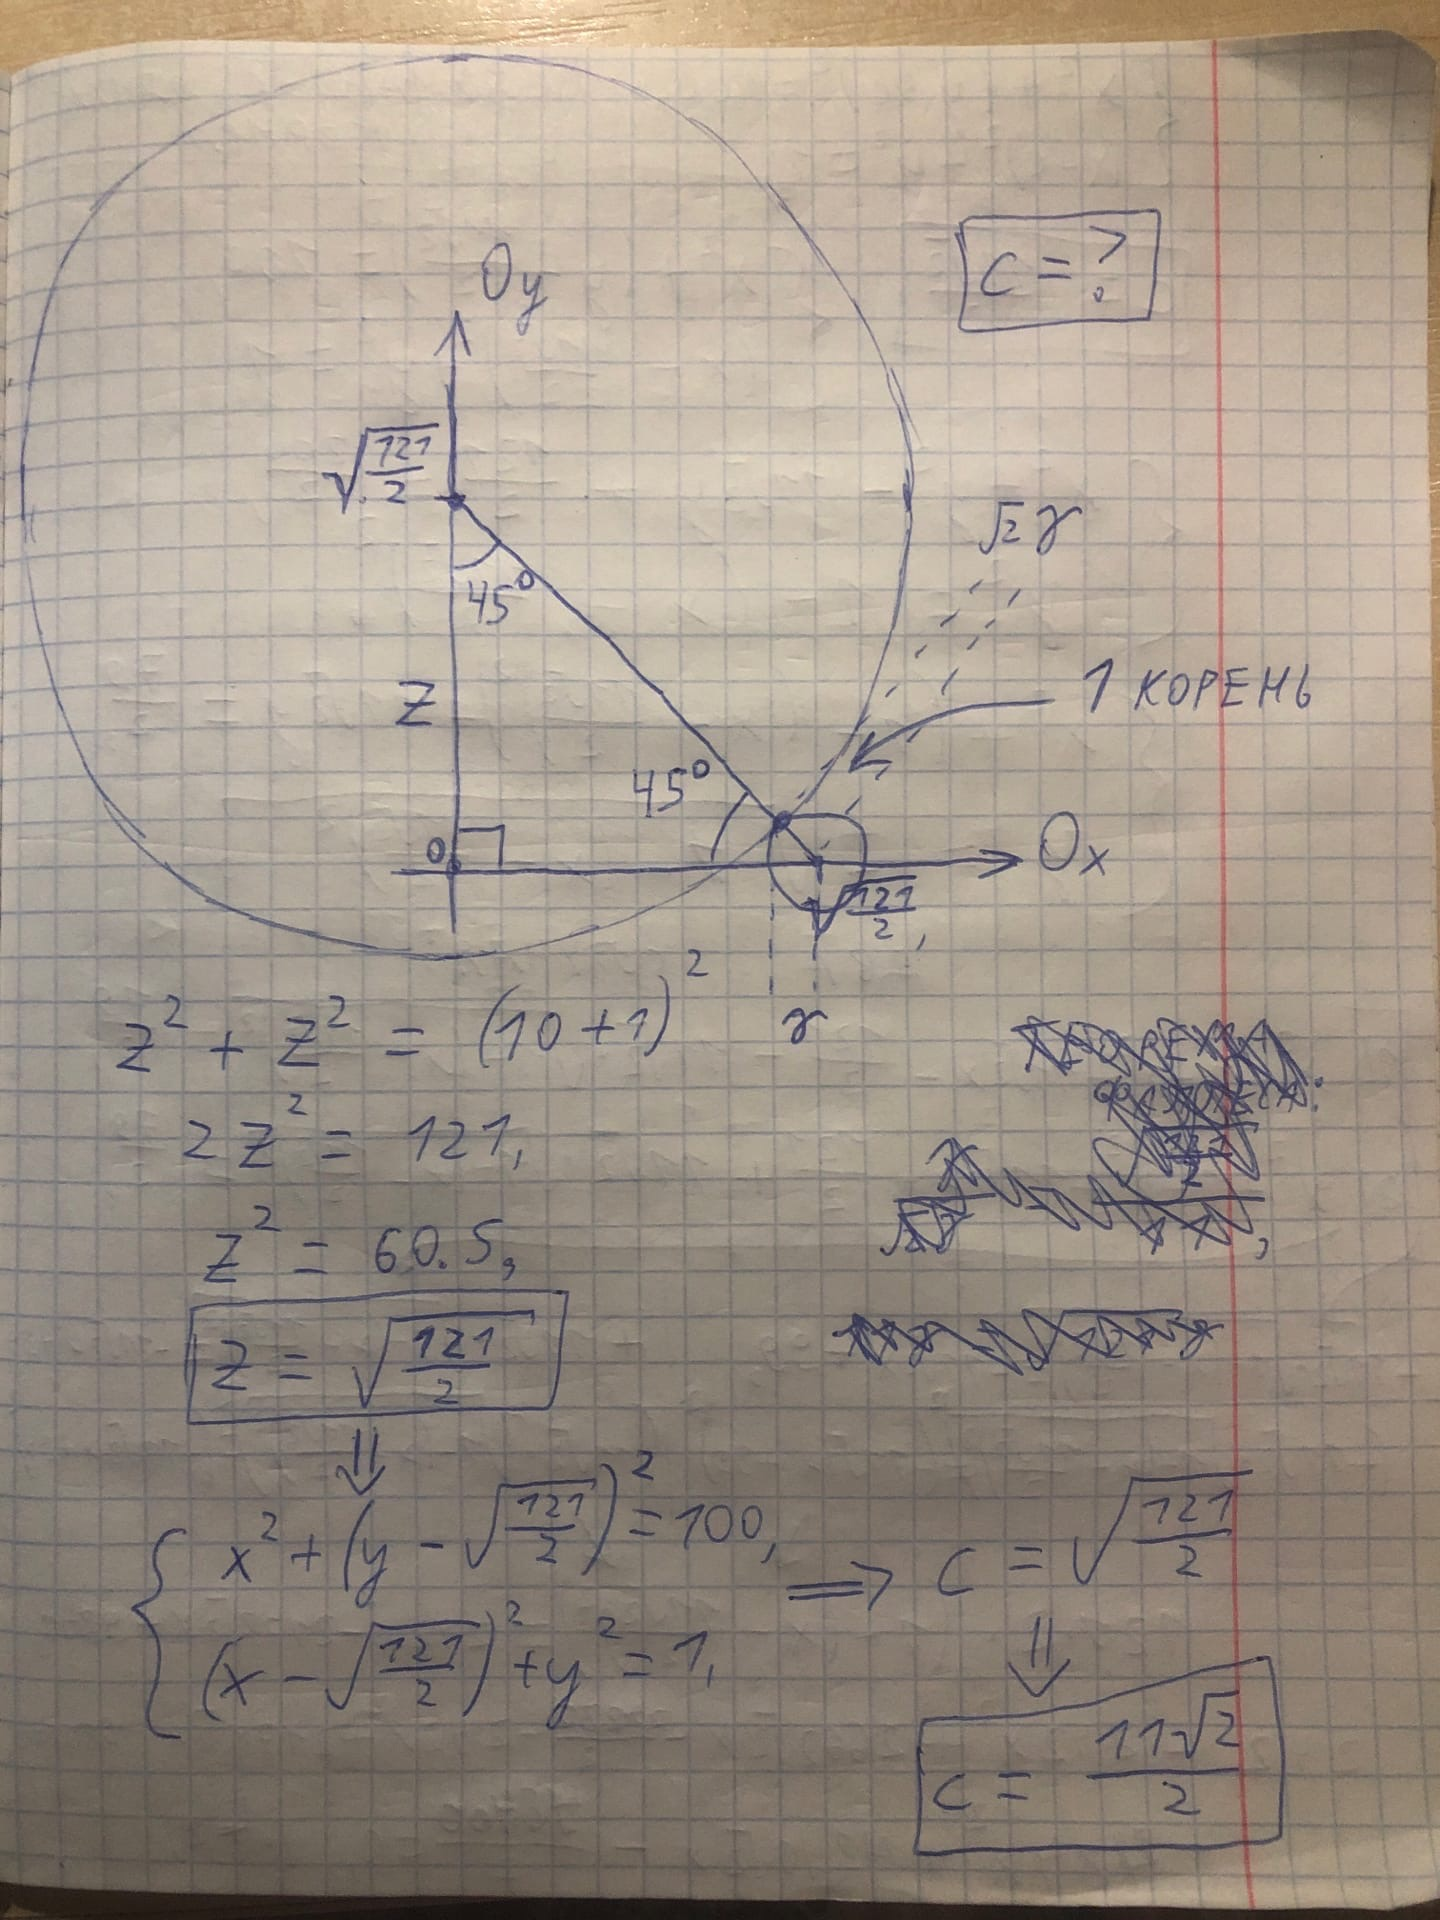 C = ?
Oy
√(121/2)
45°
√2 γ
z
1 КОРЕНЬ
45°
0
Ox
√(121/2),
γ
z² + z² = (10+1)²
2z² = 121,
z² = 60.5,
z = √(121/2)
⇓
{ x² + (y - √(121/2))² = 100,
(x - √(121/2))² + y² = 1,
⟹ c = √(121/2)
⇓
c = 11√2/2